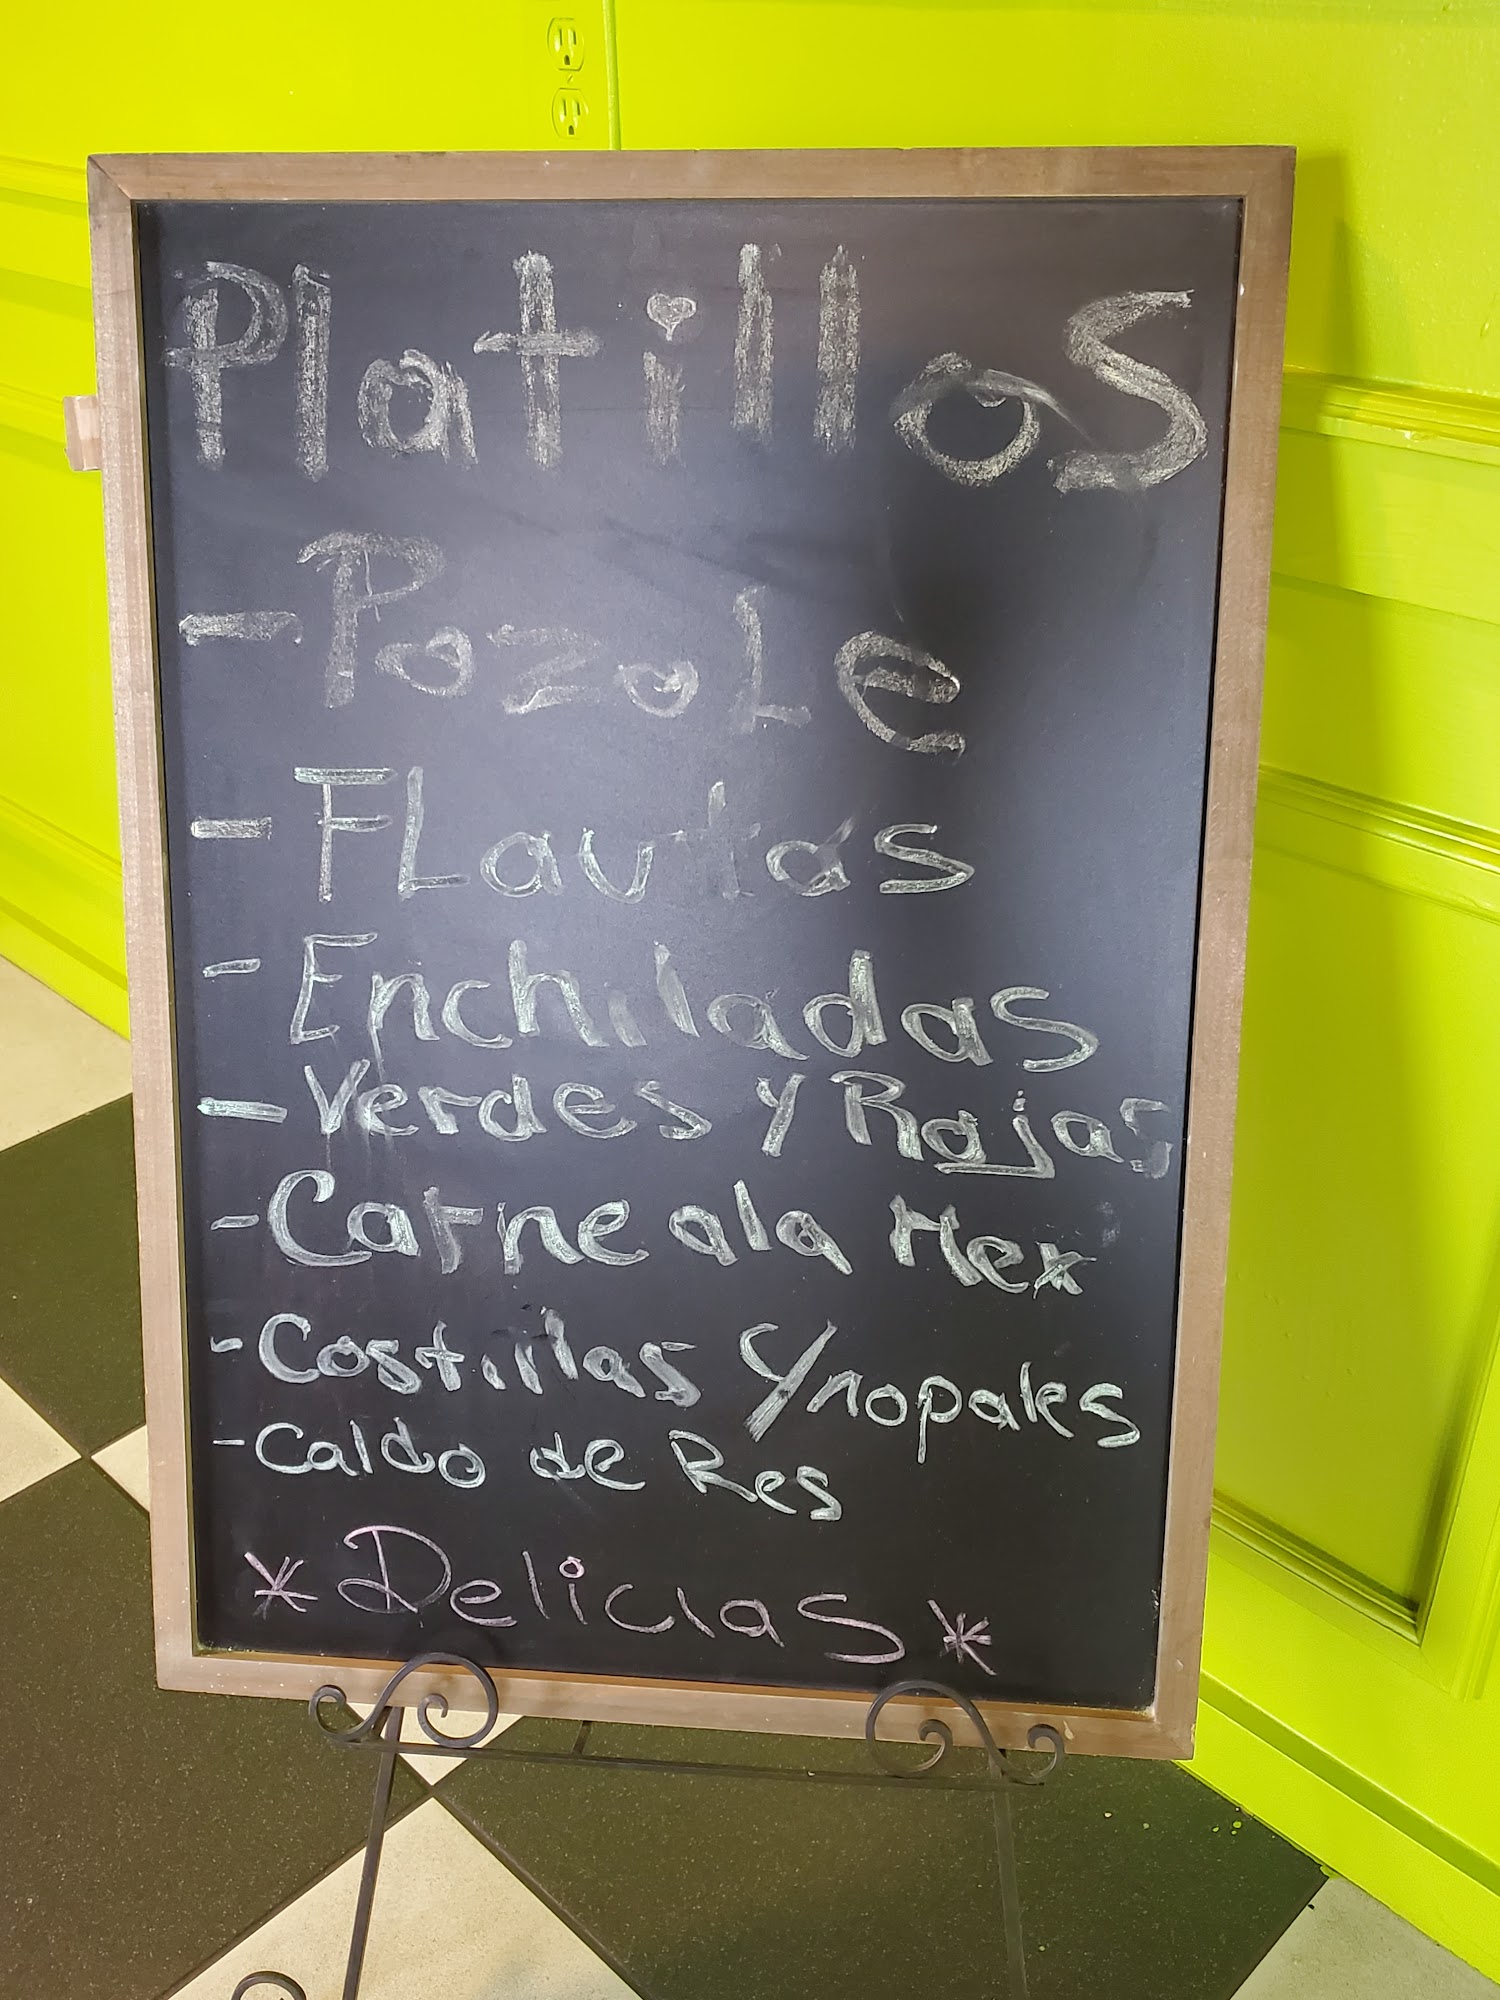 Platillos
- PozoLe
- FLautas
- Enchiladas
- Verdes y Rajas
- Carne ala Mex
- Costillas y/nopales
- Caldo de Res
* Delicias *